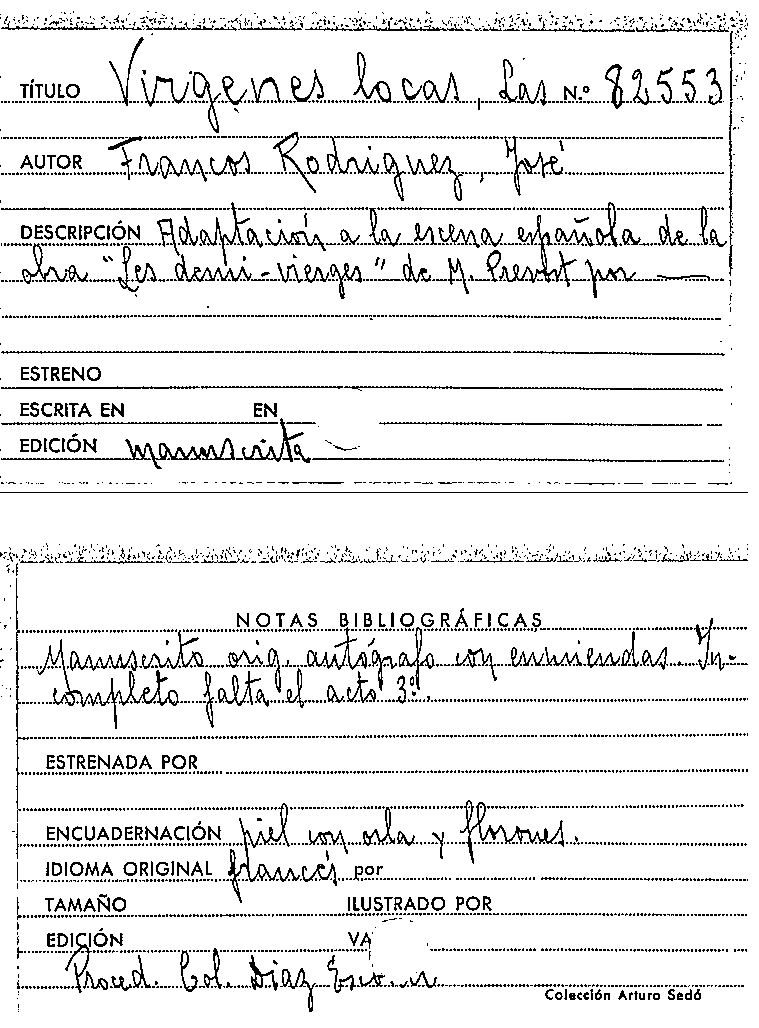 TÍTULO Virgenes locas, Las N.º 82553
AUTOR Francos Rodriguez, José
DESCRIPCIÓN Adaptación a la escena española de la
obra "Les demi-vierges" de M. Prevost por —
ESTRENO
ESCRITA EN EN
EDICIÓN manuscrita
NOTAS BIBLIOGRÁFICAS
Manuscrito orig. autógrafo con enmiendas. In-
completo falta el acto 3º.
ESTRENADA POR
ENCUADERNACIÓN piel con orla y florones.
IDIOMA ORIGINAL francés por
TAMAÑO ILUSTRADO POR
EDICIÓN VA
Proced. Col. Diaz
Colección Arturo Sedó